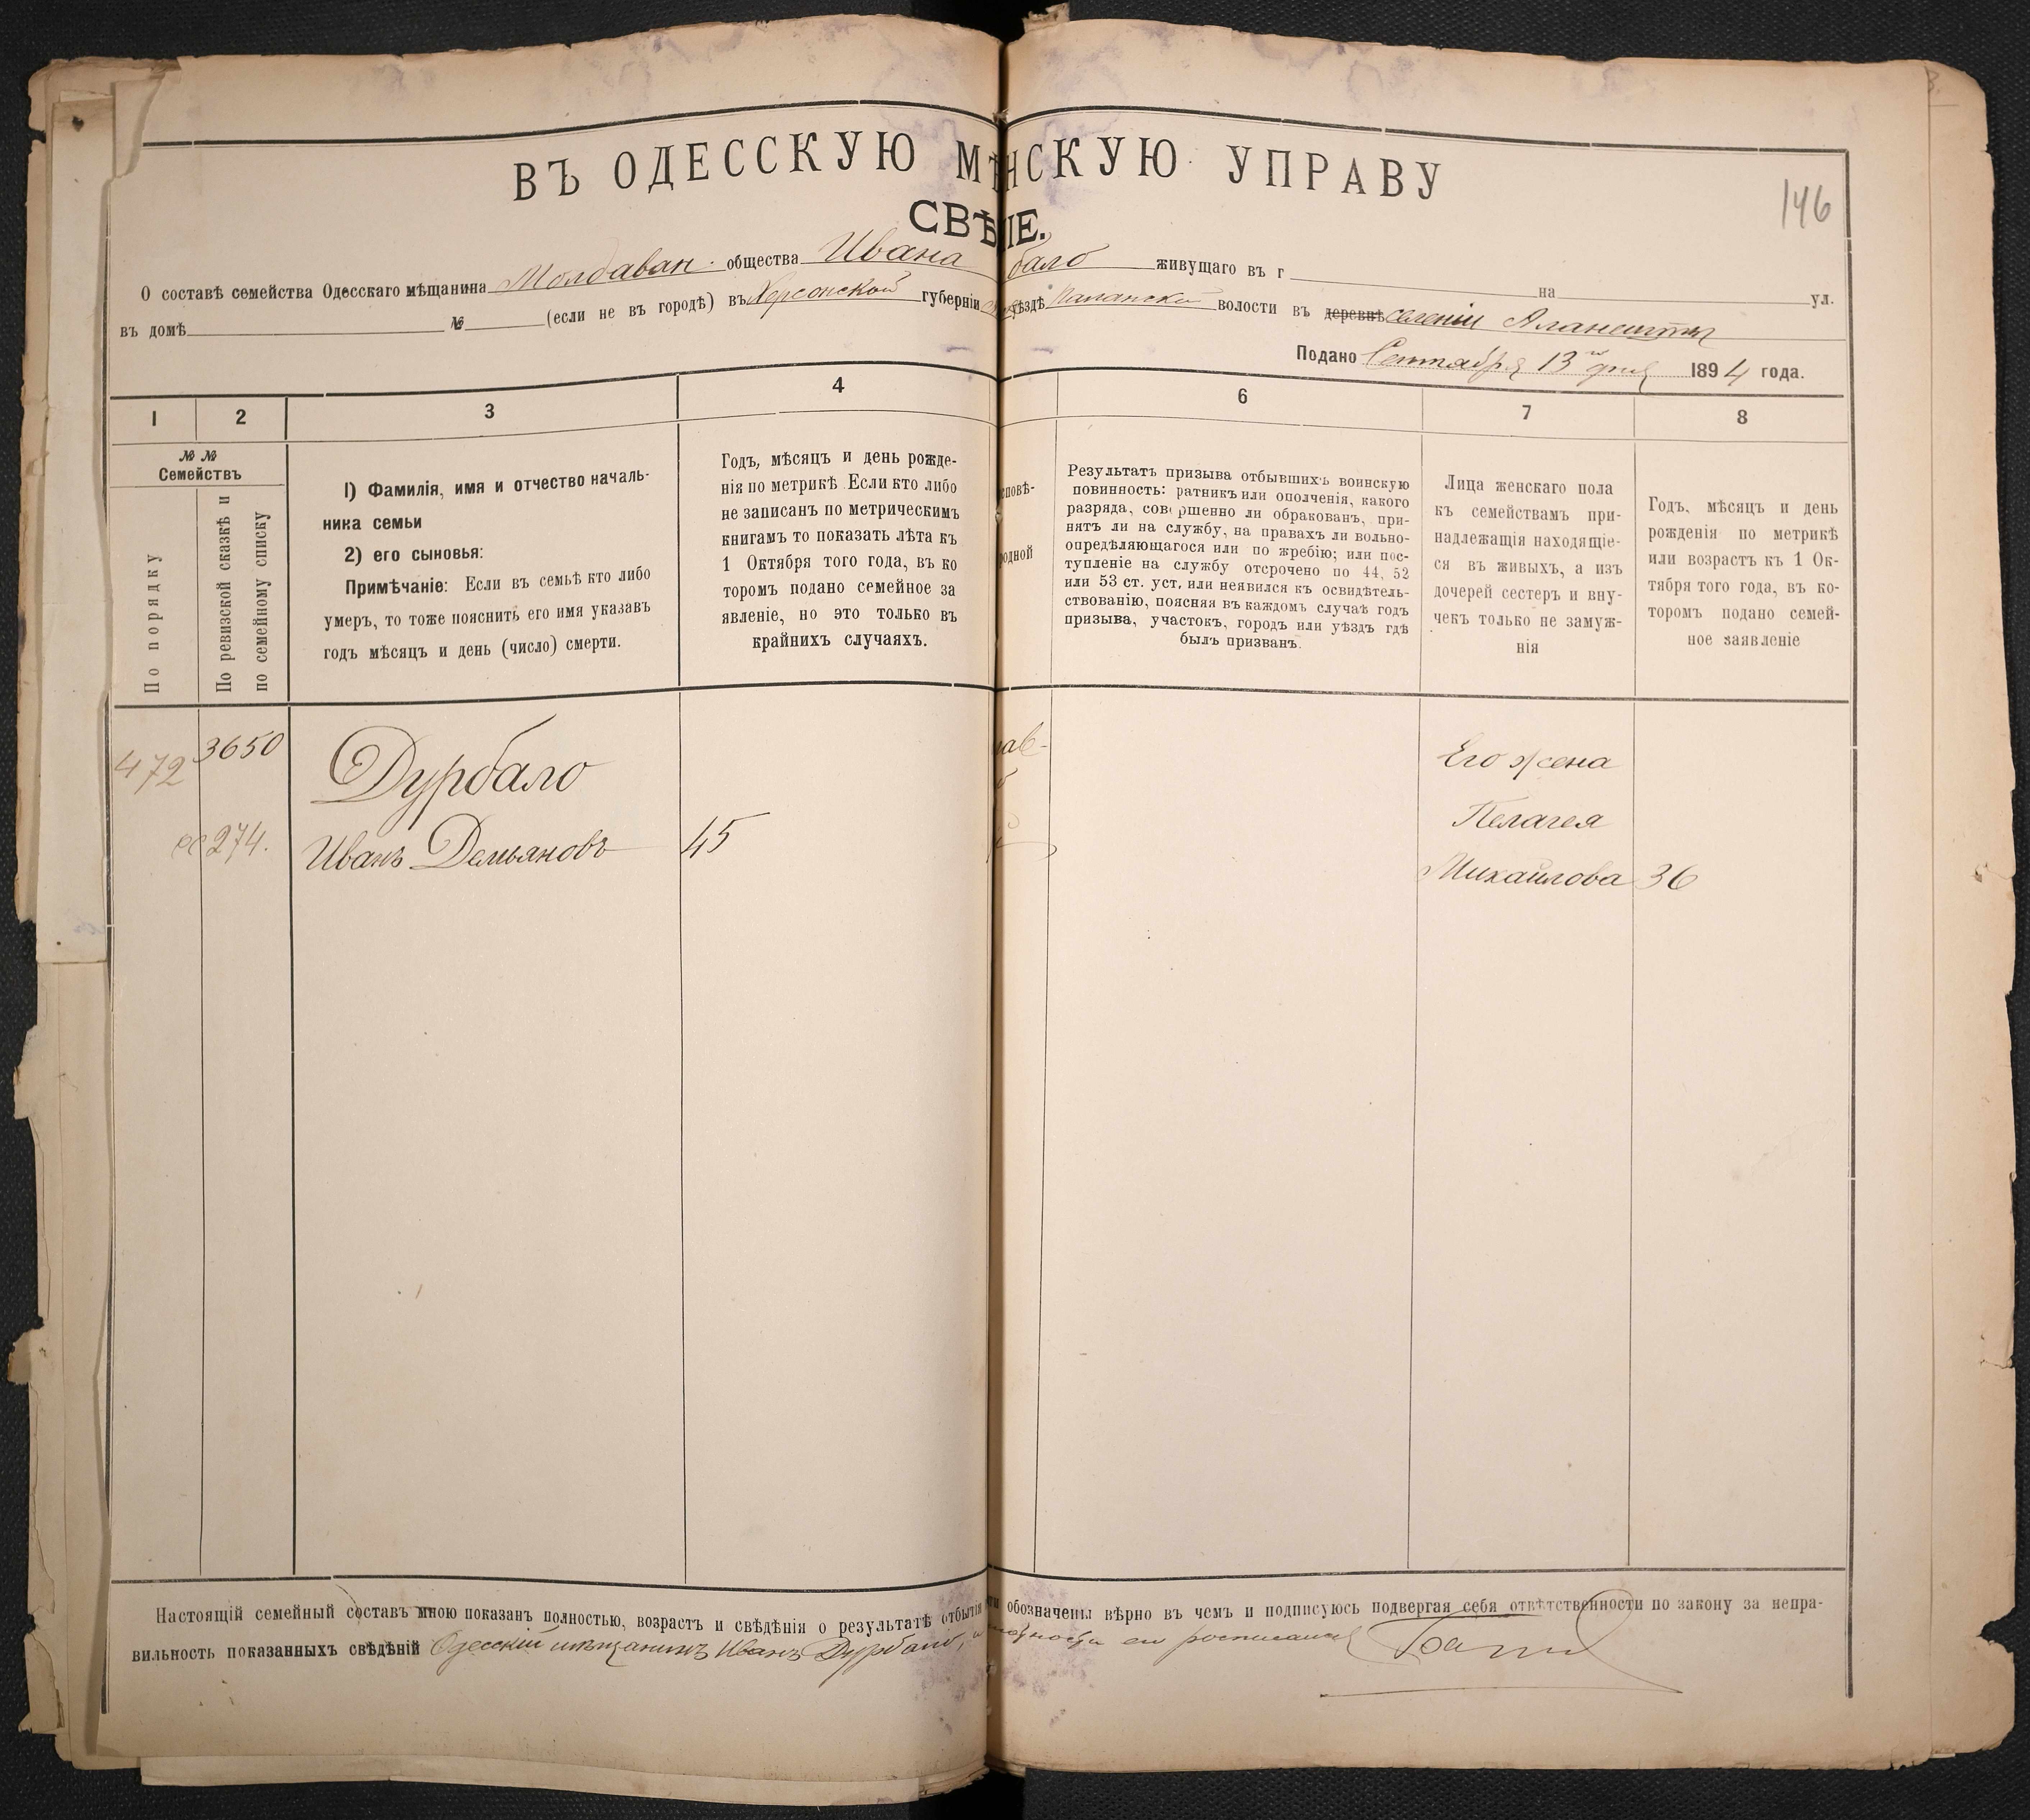 ВЪ ОДЕССКУЮ МѢ НСКУЮ УПРАВУ
146
СВѢ ІЕ.
О составѣ семейства Одесскаго мѣщанина Молдаван. общества Ивана бало живущаго въ г на ул.
въ домѣ № (если не въ городѣ) въ Херсонской губерніи уѣздѣ волости въ деревнѣ селеніи
Подано Сентября 13 дня 1894 года.
1 2 3 4 6 7 8
№ №
Семействъ
По порядку
По ревизской сказкѣ и
по семейному списку
1) Фамилія, имя и отчество началь-
ника семьи
2) его сыновья:
Примѣчаніе: Если въ семьѣ кто либо
умеръ, то тоже пояснить его имя указавъ
годъ мѣсяцъ и день (число) смерти.
Годъ, мѣсяцъ и день рожде-
нія по метрикѣ Если кто либо
не записанъ по метрическимъ
книгамъ то показать лѣта къ
1 Октября того года, въ ко
торомъ подано семейное за
явленіе, но это только въ
крайнихъ случаяхъ.
сповѣ-
родной
Результатъ призыва отбывшихъ воинскую
повинность: ратникъ или ополченія, какого
разряда, совершенно ли обракованъ, при-
нятъ ли на службу, на правахъ ли вольно-
опредѣляющагося или по жребію; или пос-
тупленіе на службу отсрочено по 44, 52
или 53 ст. уст, или неявился къ освидѣтель-
ствованію, поясняя въ каждомъ случаѣ годъ
призыва, участокъ, городъ или уѣздъ гдѣ
былъ призванъ.
Лица женскаго пола
къ семействамъ при-
надлежащія находящіе-
ся въ живыхъ, а изъ
дочерей сестеръ и вну-
чекъ только не замуж-
нія
Годъ, мѣсяцъ и день
рожденія по метрикѣ
или возрастъ къ 1 Ок-
тября того года, въ ко-
торомъ подано семей-
ное заявленіе
472 3650 Дурбало Его жена
Пелагея
274. Иванъ Демьяновъ 45
Михайлова 36
Настоящій семейный составъ мною показанъ полностью, возрастъ и сведѣнія о результатѣ отбытія обозначены вѣрно въ чемъ и подписуюсь подвергая себя отвѣтственности по закону за непра-
вильность показанныхъ свѣдѣній Одесскій мѣщанинъ Иванъ Дурбало, его росписался